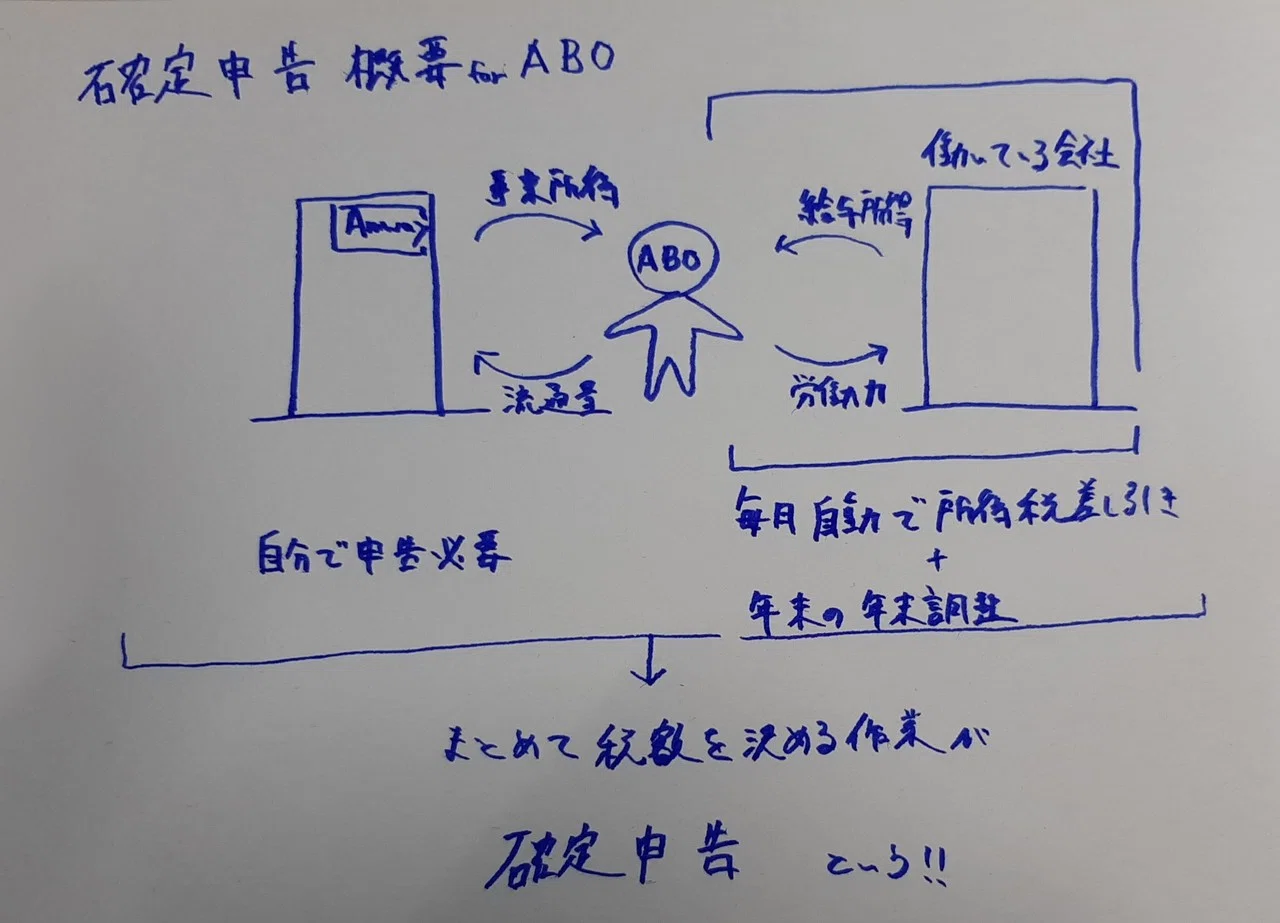 確定申告 概要 for ABO
働いている会社
事業所得
給与所得
ABO
流通量
労働力
毎月自動で所得税差し引き
+
年末の年末調整
自分で申告必要
まとめて税額を決める作業が
確定申告 という!!